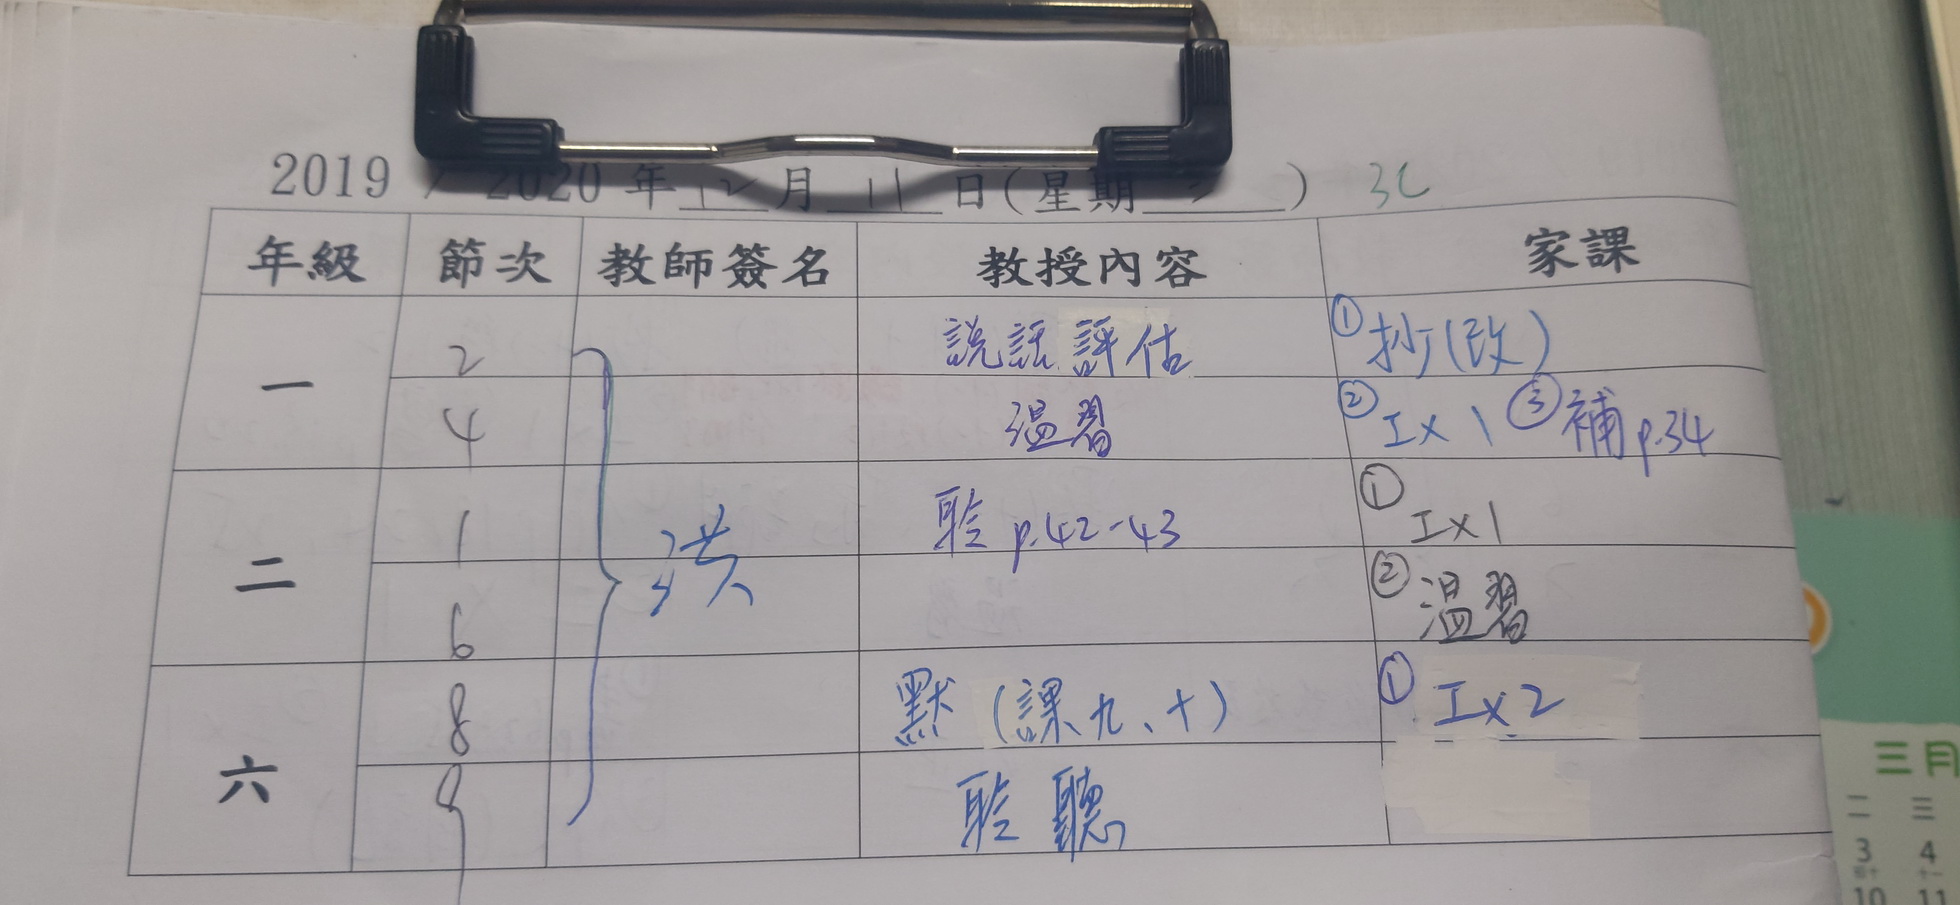 2019 / 2020 年 12 月 11 日(星期 三 ) 3C
年級 節次 教師簽名 教授內容 家課
一 2 説話評估 ①抄(改)
4 温習 ②工x1 ③補p.34
二 1 洪 聆 p.42-43 ①工x1
6 ②温習
六 8 默 (課九、十) ①工x2
9 聆聽
三月
二 三
3 4
10 11